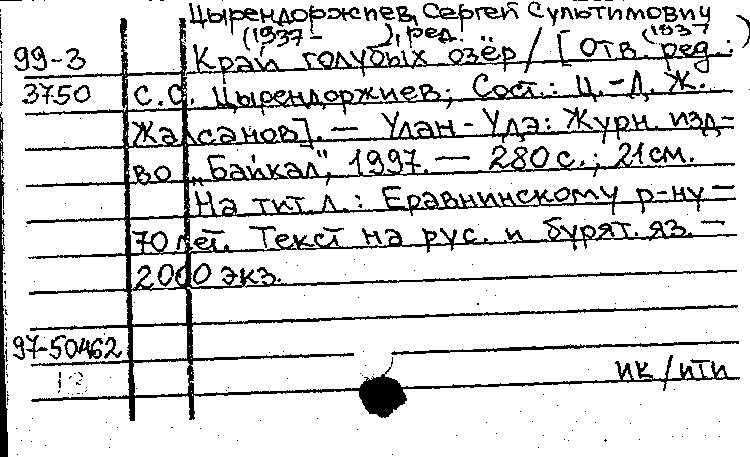 Цырендоржиев, Сергей Сультимович
(1937-      ), ред.   (1937
99-3 Край голубых озёр / [Отв. ред.:    )
3750 С.С. Цырендоржиев; Сост.: Ц.-Д. Ж.
Жалсанов]. — Улан-Удэ: Журн. изд-
во „Байкал", 1997. — 280 с.; 21 см.
На тит. л.: Еравнинскому р-ну —
70 лет. Текст на рус. и бурят. яз. —
2000 экз.
97-50462
ик/ити